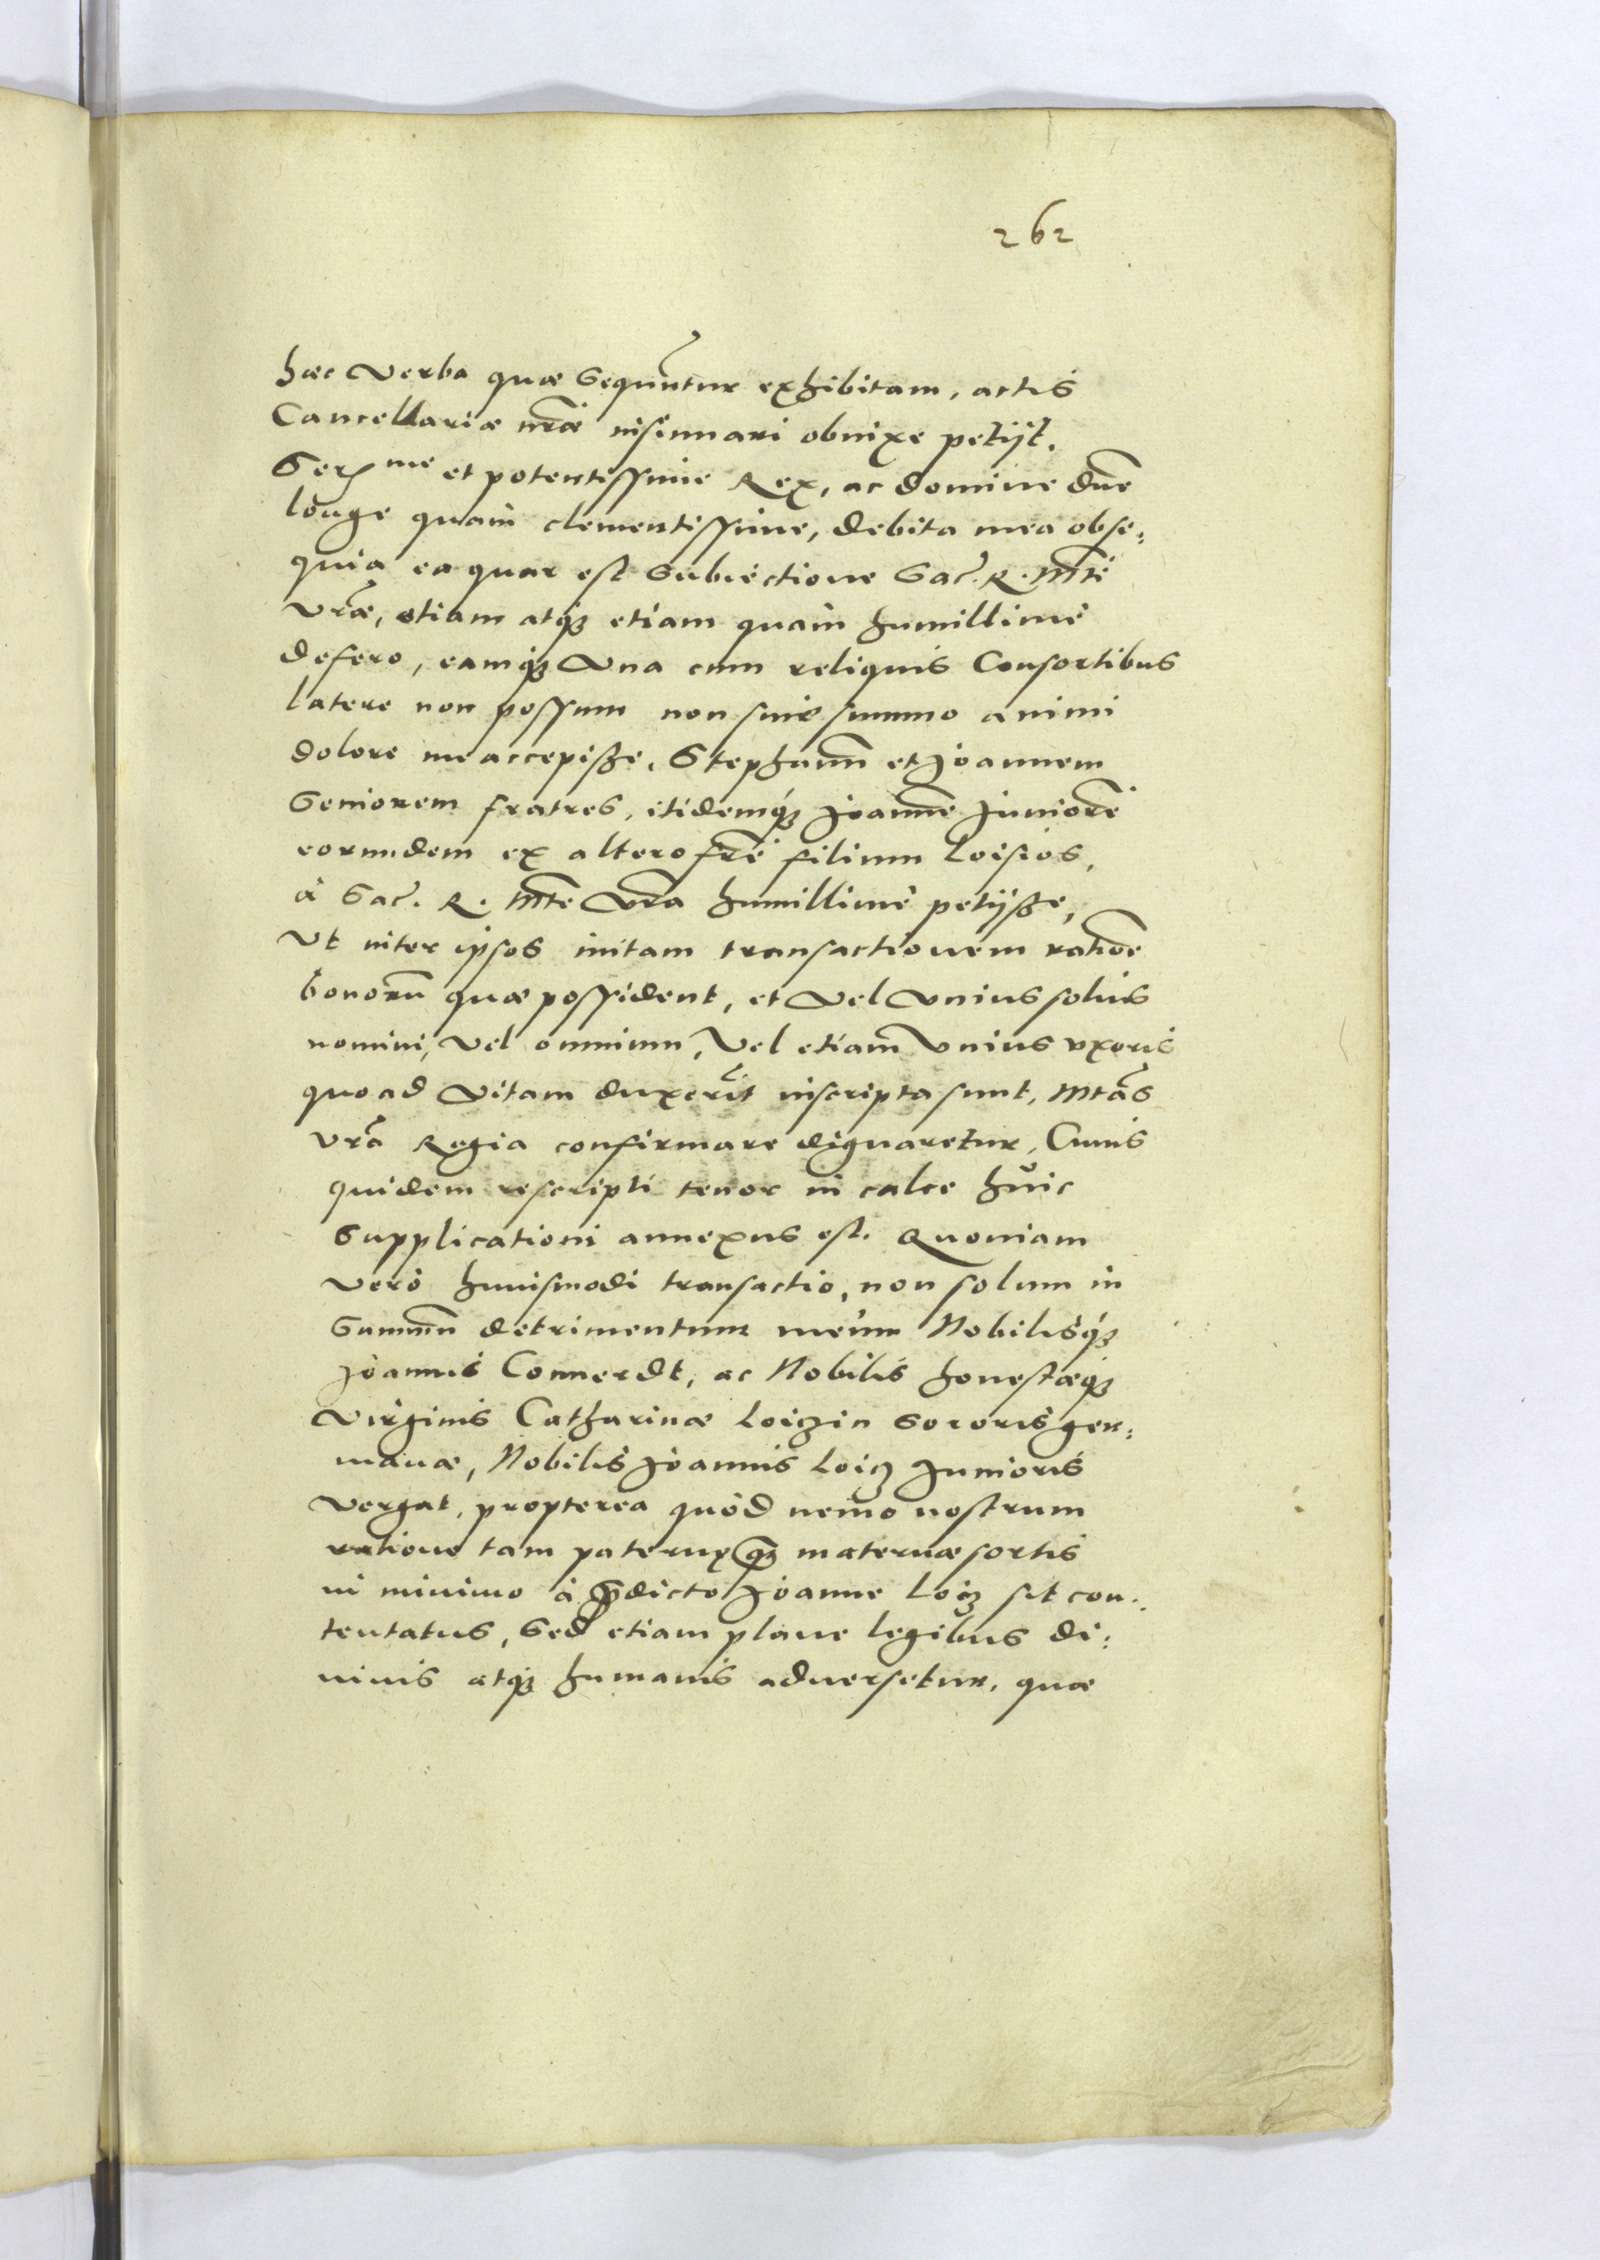 262
hæc verba quæ sequuntur exhibitam, actis
Cancellariæ nr̃æ insinuari obnixe petijt.
Ser me et potentissime Rex, ac domine dñe
longe quàm clementissime, debita mea obse:
quia ea quae est subiectione Sac. R. Mti
vr̃æ, etiam atq; etiam quàm humillimè
defero, eamq; vna cum reliquis Consortibus
latere non possum non sine summo animi
dolore me accepisse, Stephanũ et Joannem
Seniorem fratres, itidemq; Joannẽ Juniorẽ
eorundem ex altero frẽ filium Loisios,
à Sac. R. Mte Vr̃a humillimè petijsse,
Vt inter ipsos initam transactionem ratiõe
bonorũ quæ possident, et vel vnius solius
nomini, vel omnium, Vel etiam vnius vxoris
quoad vitam duxerit inscripta sunt, Mtas
vr̃a Regia confirmare dignaretur, Cuius
quidem rescripti tenor in calce huic
Supplicationi annexus est. Quoniam
verò huiusmodi transactio, non solum in
Summũ detrimentum meum Nobilisq;
Joannis Connerdt, ac Nobilis honestæq;
Virginis Catharinæ Loizin Sororis ger:
manæ, Nobilis Joannis Loiz Junioris
vergat, propterea quòd nemo nostrum
ratione tam paternę q; maternæ sortis
in minimo à p̃dicto Joanne Loiz sit con:
tentatus, Sed etiam plane legibus di:
uinis atq; humanis aduersetur, quæ